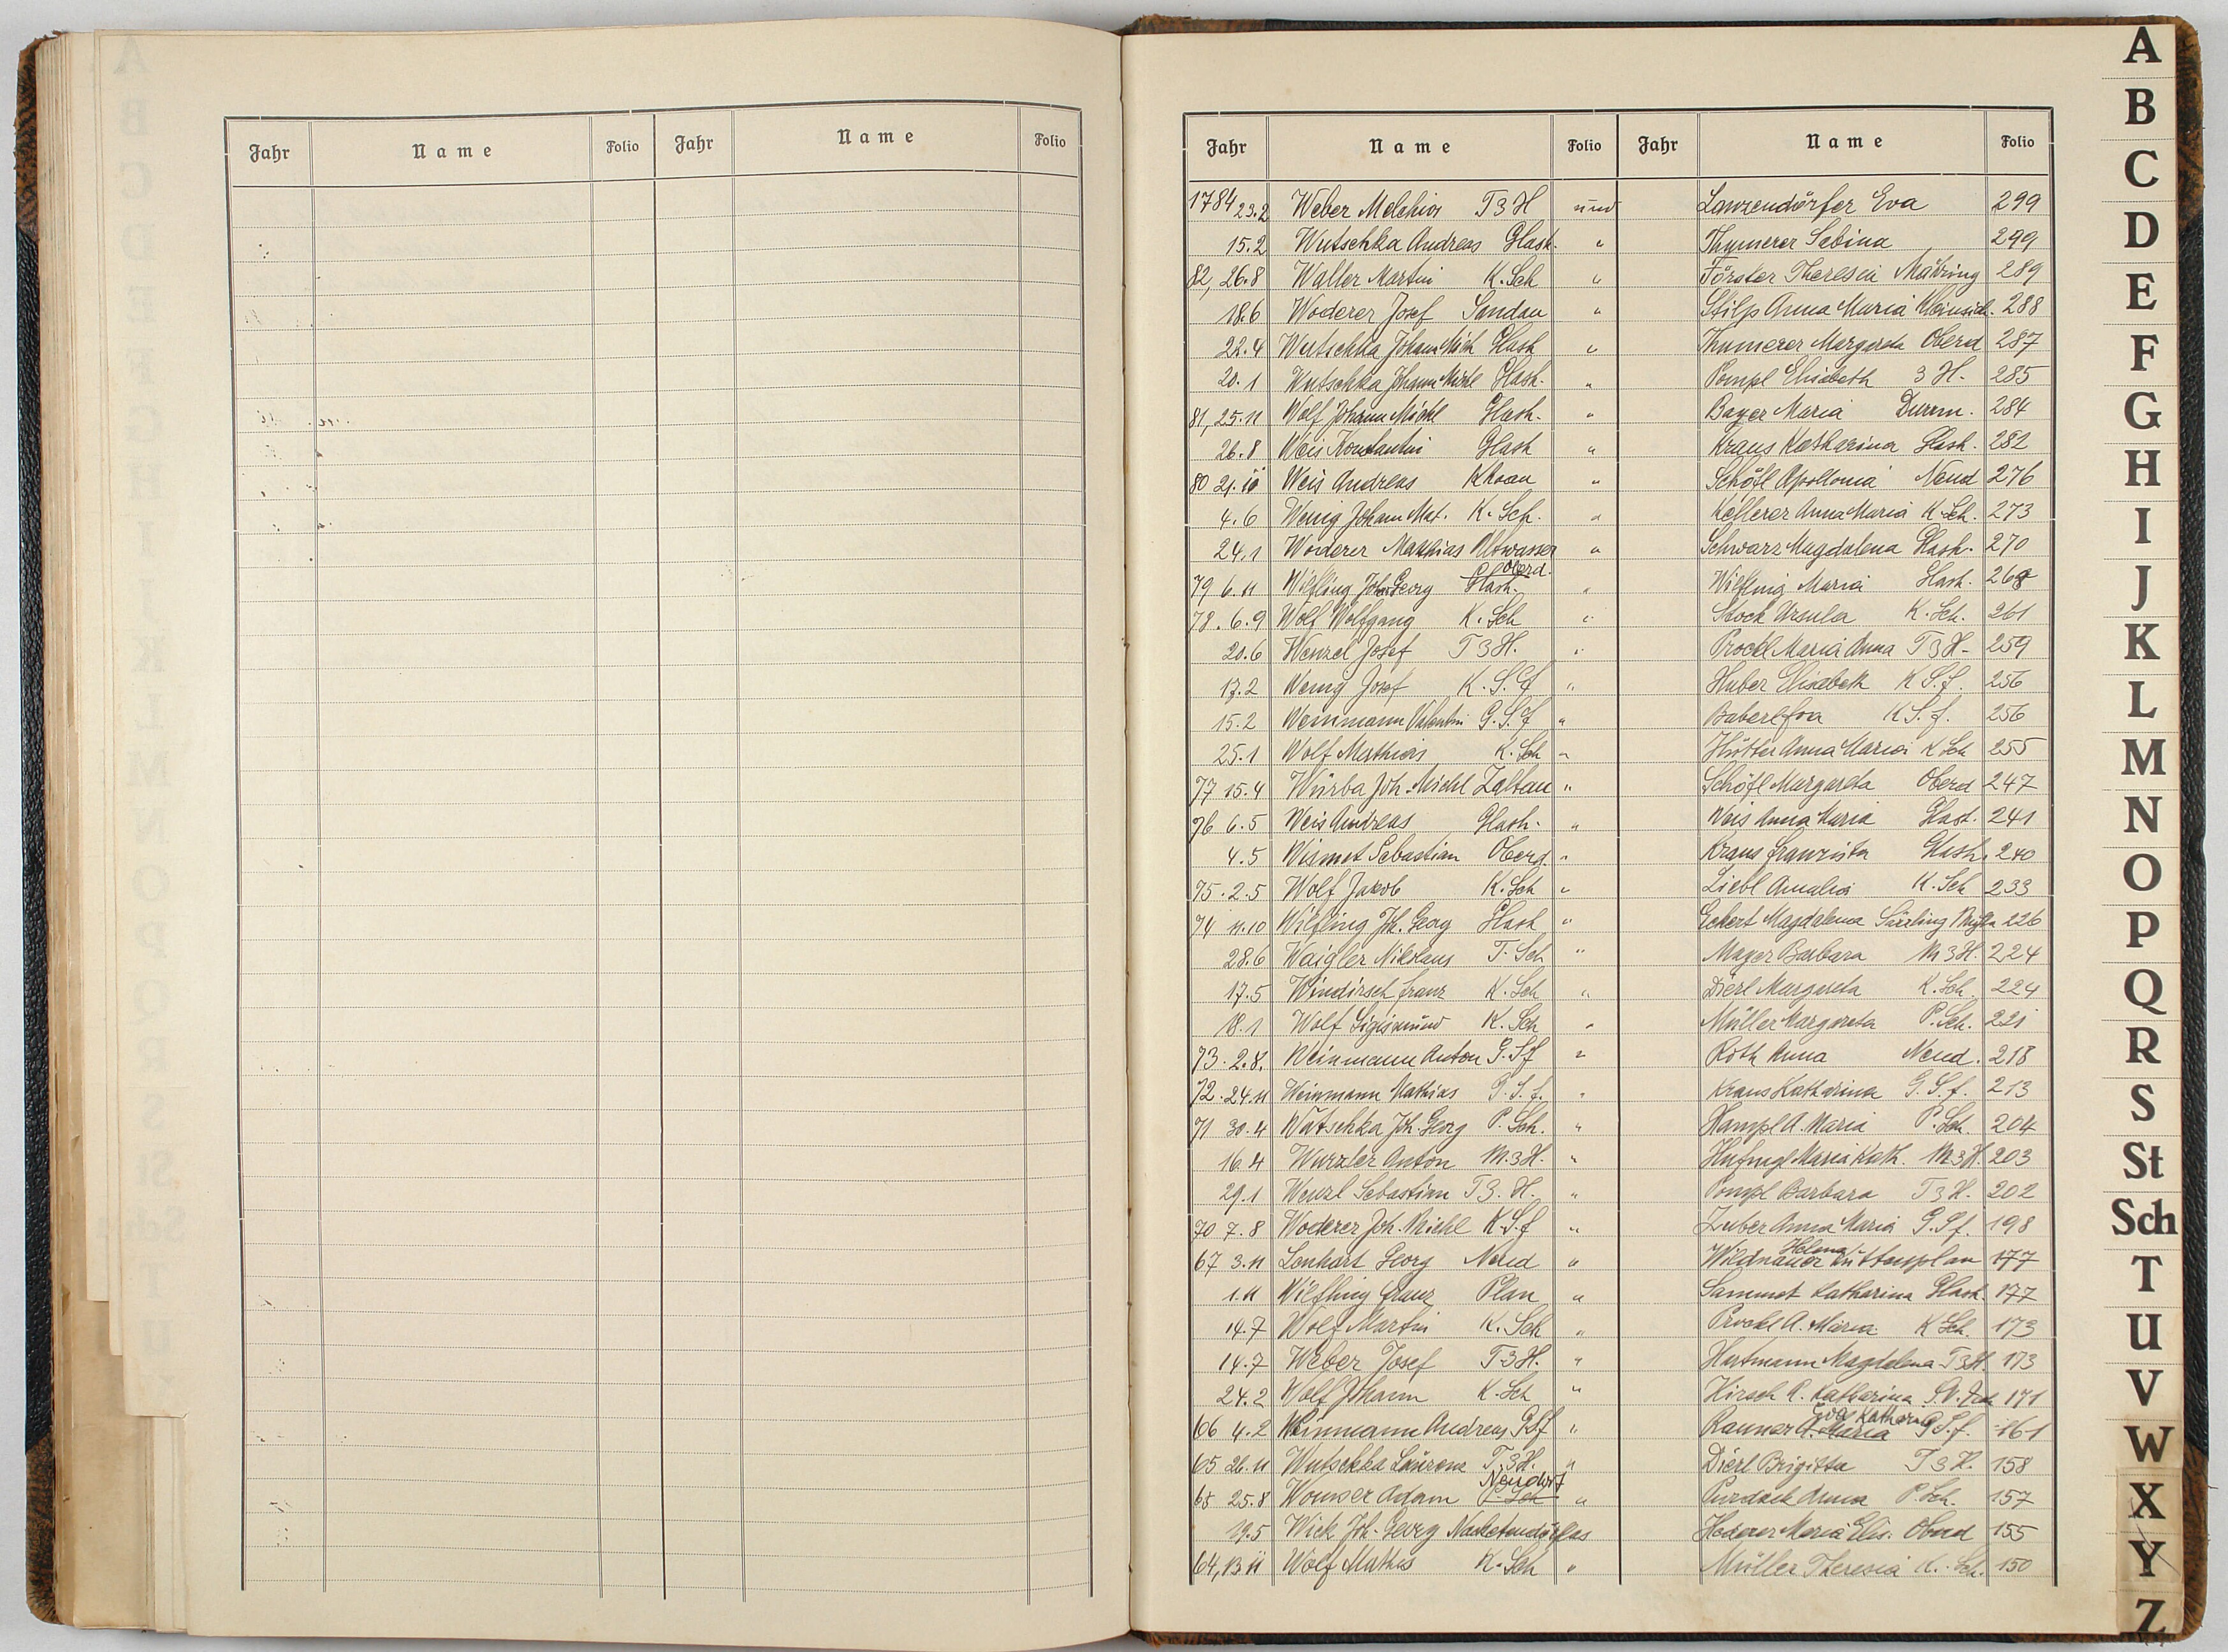 Jahr Name Folio Jahr Name Folio
Jahr Name Folio Jahr Name Folio
1784 23.2 Weber Melchior T3H und Lanzendörfer Eva 299
15.2 Wutschka Andreas Glash. " Thymerer Sabina 299
82, 26.8 Waller Martin K.Sch " Förster Theresia Mähring 289
18.6 Woderer Josef Sandau " Stilp Anna Maria 288
22.4 Wutschka Johann Mich Glash " Thumerer Margareta Oberd 287
20.1 Wutschka Johann Michl Glash. " Pompl Elisabeth 3H- 285
81, 25.11 Wolf Johann Michl Glash. " Bayer Maria Durrm. 284
26.8 Weis Konstantin Glash " Kraus Katharina Glash. 282
80 21.10 Weis Andreas Khoau " Schöfl Apollonia Neud 276
4.6 Wenig Johann Mat. K.Sch. " Kellerer Anna Maria K.Sch. 273
24.1 Woderer Matthias Altwasser " Schwarz Magdalena Glash. 270
79 6.11 Wilfling Joh. Georg Glash. Oberd. " Wilfling Maria Glash. 268
78. 6.9 Wolf Wolfgang K.Sch " Stock Ursula K.Sch. 261
20.6 Wenzel Josef T3H. " Prockl Maria Anna T3H- 259
17.2 Wenig Josef K.S.f " Huber Elisabeth K S.f. 256
15.2 Weinmann Valentin G.S.f " Baberl Eva K S.f. 256
25.1 Wolf Mathias K.Sch " Hüttl Anna Maria K Sch 255
77 15.4 Würba Joh. Michl Zaltau " Schöfl Margareta Oberd 247
76 6.5 Weis Andreas Glash. " Weis Anna Maria Glash. 241
4.5 Wismet Sebastian Oberd. " Kraus Franziska Glash. 240
75. 2.5 Wolf Jakob K.Sch " Liebl Amalia K.Sch 233
74 11.10 Wilfling Joh. Georg Glash " Eckert Magdalena 226
28.6 Waigler Nikolaus T.Sch " Mayer Barbara M3H. 224
17.5 Windirsch Franz K.Sch " Dierl Margareta K.Sch. 224
18.1 Wolf Sigismund K.Sch " Müller Margareta P.Sch. 221
73. 2.8. Weinmann Anton G.Sf " Röth Anna Neud. 218
72. 24.11 Weinmann Mathias G.S.f. " Kraus Katharina G.S.f. 213
71 30.4 Watschka Joh. Georg P.Sch. " Hampl A. Maria P.Sch. 204
16.4 Wurzler Anton M.3H. " Hufnagl Maria Kath. M3H. 203
29.1 Wenzl Sebastian T3.H. " Pompl Barbara T3H. 202
70 7.8 Woderer Joh. Michl K.S.f " Zuber Anna Maria G.Sf. 198
67 3.11 Lenhart Georg Neud " Wildnauer Helena Kuttenplan 177
1.11 Wilfling Franz Plan " Sammet Katharina Glash. 177
14.7 Wolf Martin K.Sch " Prockl A. Maria K Sch. 173
14.7 Weber Josef T3H. " Hartmann Magdalena T3H. 173
24.2 Wolf Johann K.Sch " Hirsch A. Katharina 171
66 4.2 Weinmann Andreas GSf " Ranner A. Maria Eva Katharina G S.f. 161
65 26.11 Wutschka Laurenz T3H. " Dierl Brigitta T3H. 158
65 25.8 Womser Adam P.Sch Neudorf " Purdack Anna P.Sch. 157
19.5 Wick Joh. Georg Nacketendörflas Hederer Maria Elis. Oberd 155
64, 13.11 Wolf Mathis K.Sch " Müller Theresia K.Sch. 150
A
B
C
D
E
F
G
H
I
J
K
L
M
N
O
P
Q
R
S
St
Sch
T
U
V
W
X
Y
Z